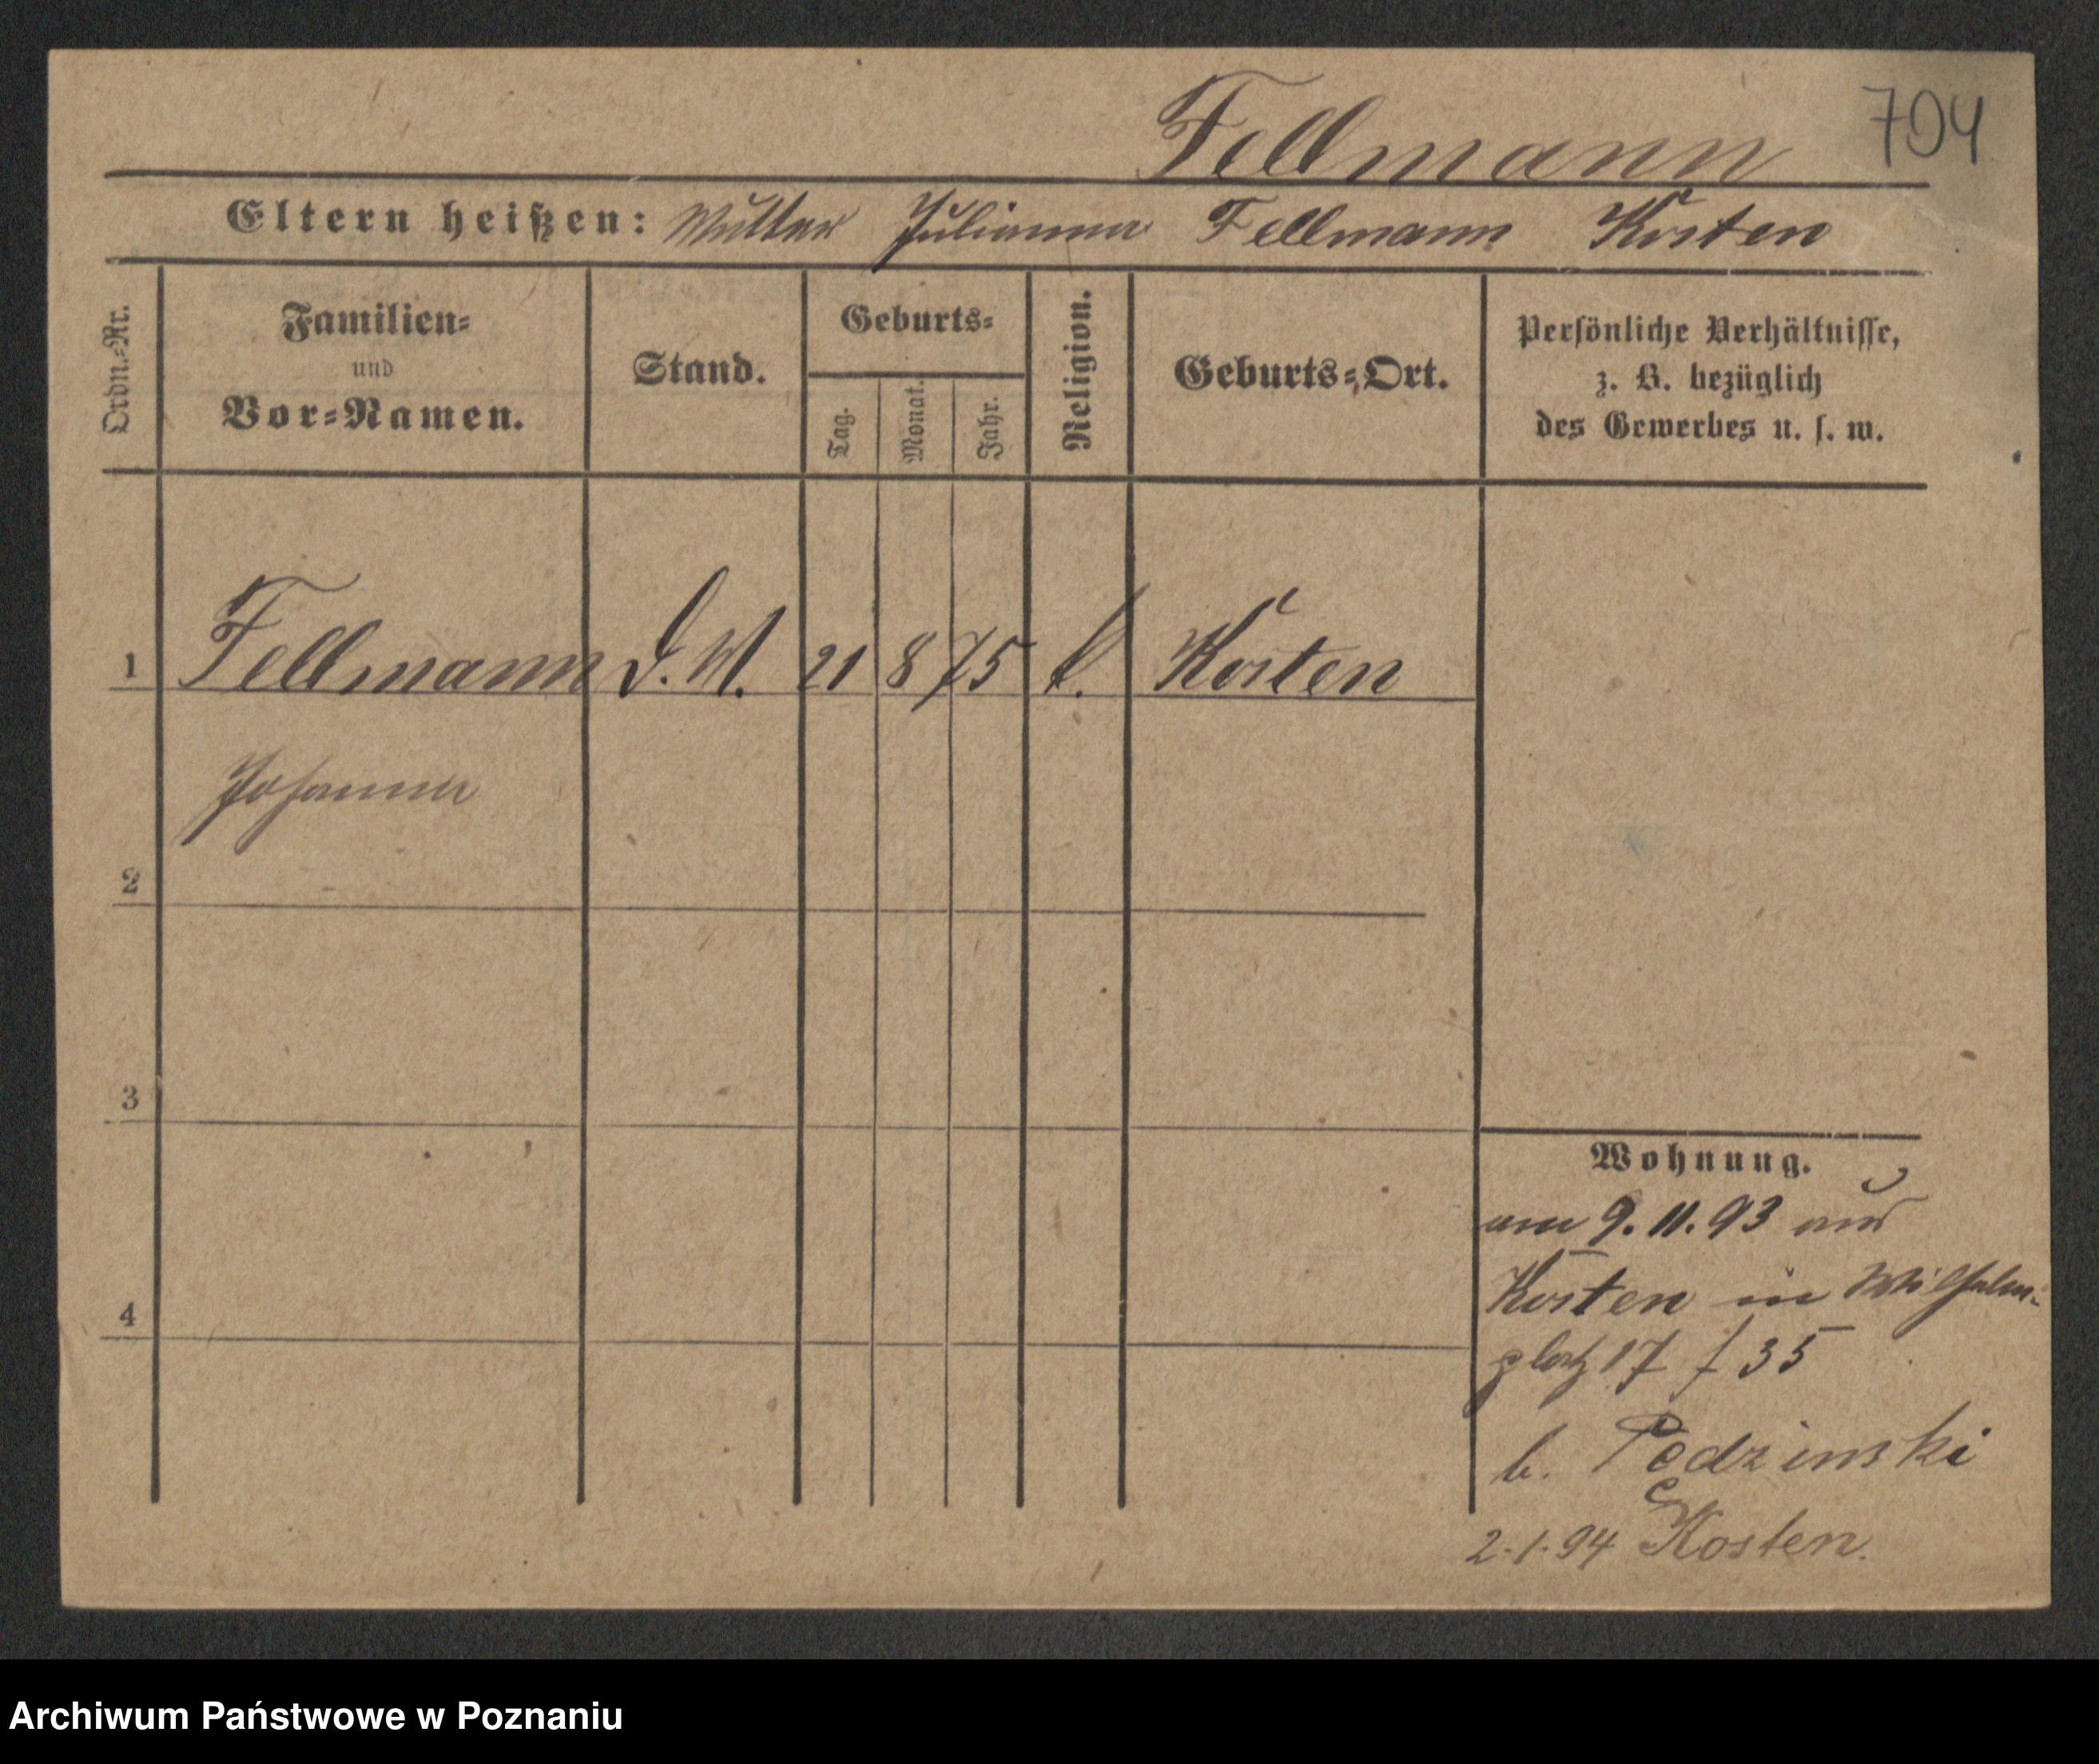 Fellmann 704
Eltern heißen: Mutter Julianna Fellmann Kosten
Ordn.-Nr.
Familien-
und
Vor-Namen.
Stand.
Geburts-
Tag.
Monat.
Jahr.
Religion.
Geburts-Ort.
Persönliche Verhältnisse,
z. B. bezüglich
des Gewerbes u. s. w.
1 Fellmann D. M. 21 8 75 k. Kosten
Johanna
2
3
4
Wohnung.
am 9. 11. 93 aus
Kosten in Wilhelm-
platz 17 / 35
b. Pędzinski
2-1-94 Kosten.
Archiwum Państwowe w Poznaniu